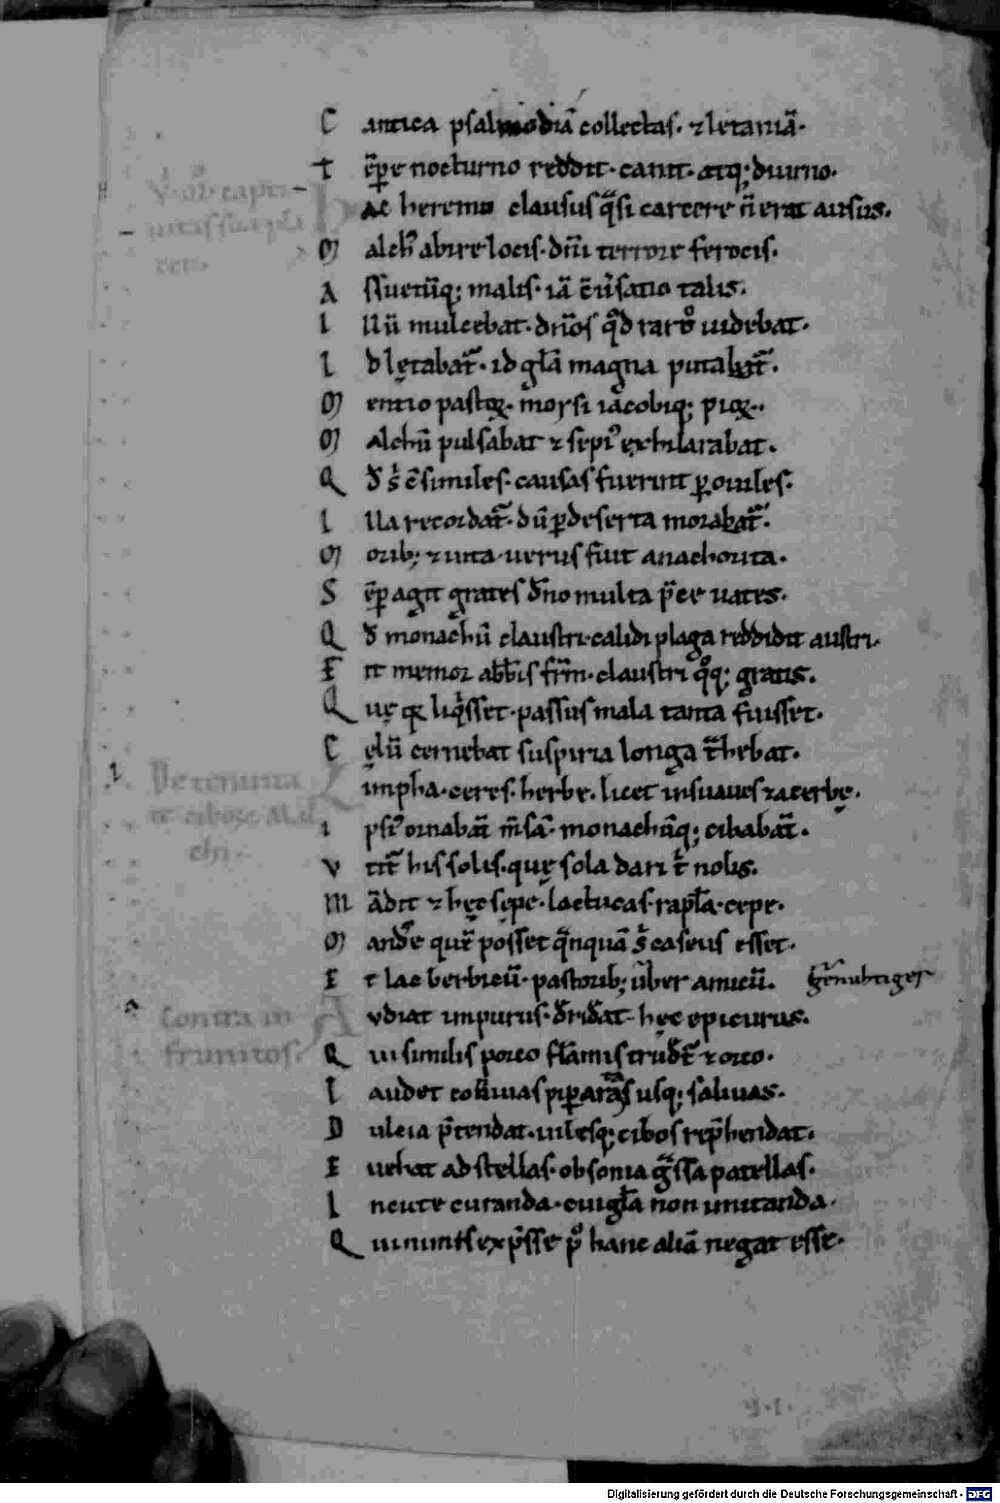 C antica psalmodiā collectas· ⁊ letaniā·
T ēpe nocturno reddit· canit· atq; diurno·
V̓· q̄m capti-
uitas sua pla
cet·
H ac heremo clausus q̄si carcere n̄ erat ausus·
M alch᾽ abire locis· dn̄i terrore ferocis·
A ssuetūq; malis· iā talis·
I llū mulcebat· dn̄os qd̄ raro uidebat·
I d lętabat᷑· id gl̄a magna putabat᷑·
M entio pastoꝝ· moysi iacobiq; pioꝝ·
M alchū pulsabat ⁊ sepi᾽ exhilarabat·
Q d̄ similes· causas fuerint ꝑ ouiles·
I lla recordat᷑· dū ꝑ deserta morabat᷑·
M orib; ⁊ uita· uerus fuit anachorita·
S ēp agit grates dn̄o multa p̄ce uates·
Q d̄ monachū claustri· calidi plaga reddidit austri·
E it memor abb̄is frm̄· claustri qq; gratis·
Q uę liqisset· passus mala tanta fuisset·
C ęlū cernebat suspiria longa t̄hebat·
De tenuita
te ciboꝝ Mal
chi·
L impha· ceres· herbe· licet insuaues ⁊ acerbę·
I psi᾽ ornabāt m̄sā· monachūq; cibabāt·
V tit᷑ his solis· quę sola dari nolis·
M ādit ⁊ hęc sępe· lactucas· cepe·
M posset qnquā s; caseus esset·
E t lac berbicū· pastorib; ūber amicū·
Contra in
frunitos·
A udiat impurus· d̄rideat hęc epicurus·
Q ui similis porco flāmis trudet᷑ ⁊ orco·
L audet conuiuas piꝑatas usq; saliuas·
D ulcia p̄tendat· uilesq; cibos rep̄hendat·
E uehat ad stellas· obsonia gssa patellas·
I ncute curanda· cui gl̄a non imitanda·
Q ui nimis expsse p᾽ hanc aliā negat esse·
Digitalisierung gefördert durch die Deutsche Forschungsgemeinschaft - DFG